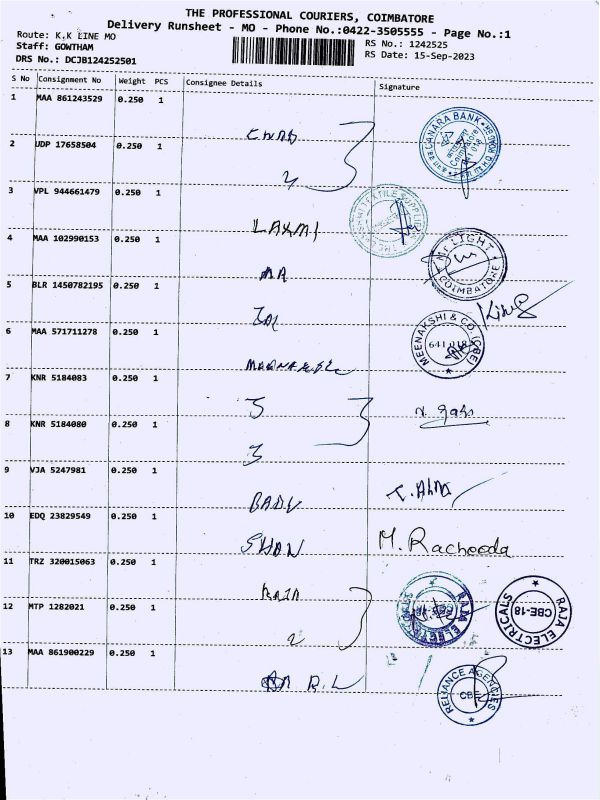 THE PROFESSIONAL COURIERS, COIMBATORE
Delivery Runsheet - MO - Phone No.:0422-3505555 - Page No.:1
Route: K.K LINE MO
RS No.: 1242525
Staff: GOWTHAM
RS Date: 15-Sep-2023
DRS No.: DCJB124252501
S No Consignment No Weight PCS Consignee Details Signature
1 MAA 861243529 0.250 1
CANARA BANK
2 UDP 17658504 0.250 1
3 VPL 944661479 0.250 1
LAXMI
4 MAA 102990153 0.250 1
MR LIGHT
COIMBATORE
5 BLR 1450782195 0.250 1
6 MAA 571711278 0.250 1
MEENAKSHI & CO. (CBE)
641 018
7 KNR 5184083 0.250 1
3
8 KNR 5184080 0.250 1
3
9 VJA 5247981 0.250 1
10 EDQ 23829549 0.250 1
M. Racheeda
11 TRZ 320015063 0.250 1
RAJA
RAJA ELECTRICALS
CBE-18
12 MTP 1282021 0.250 1
2
RAJA ELECTRICALS
CBE-18
13 MAA 861900229 0.250 1
R.L
RELIANCE AGENCIES
CBE